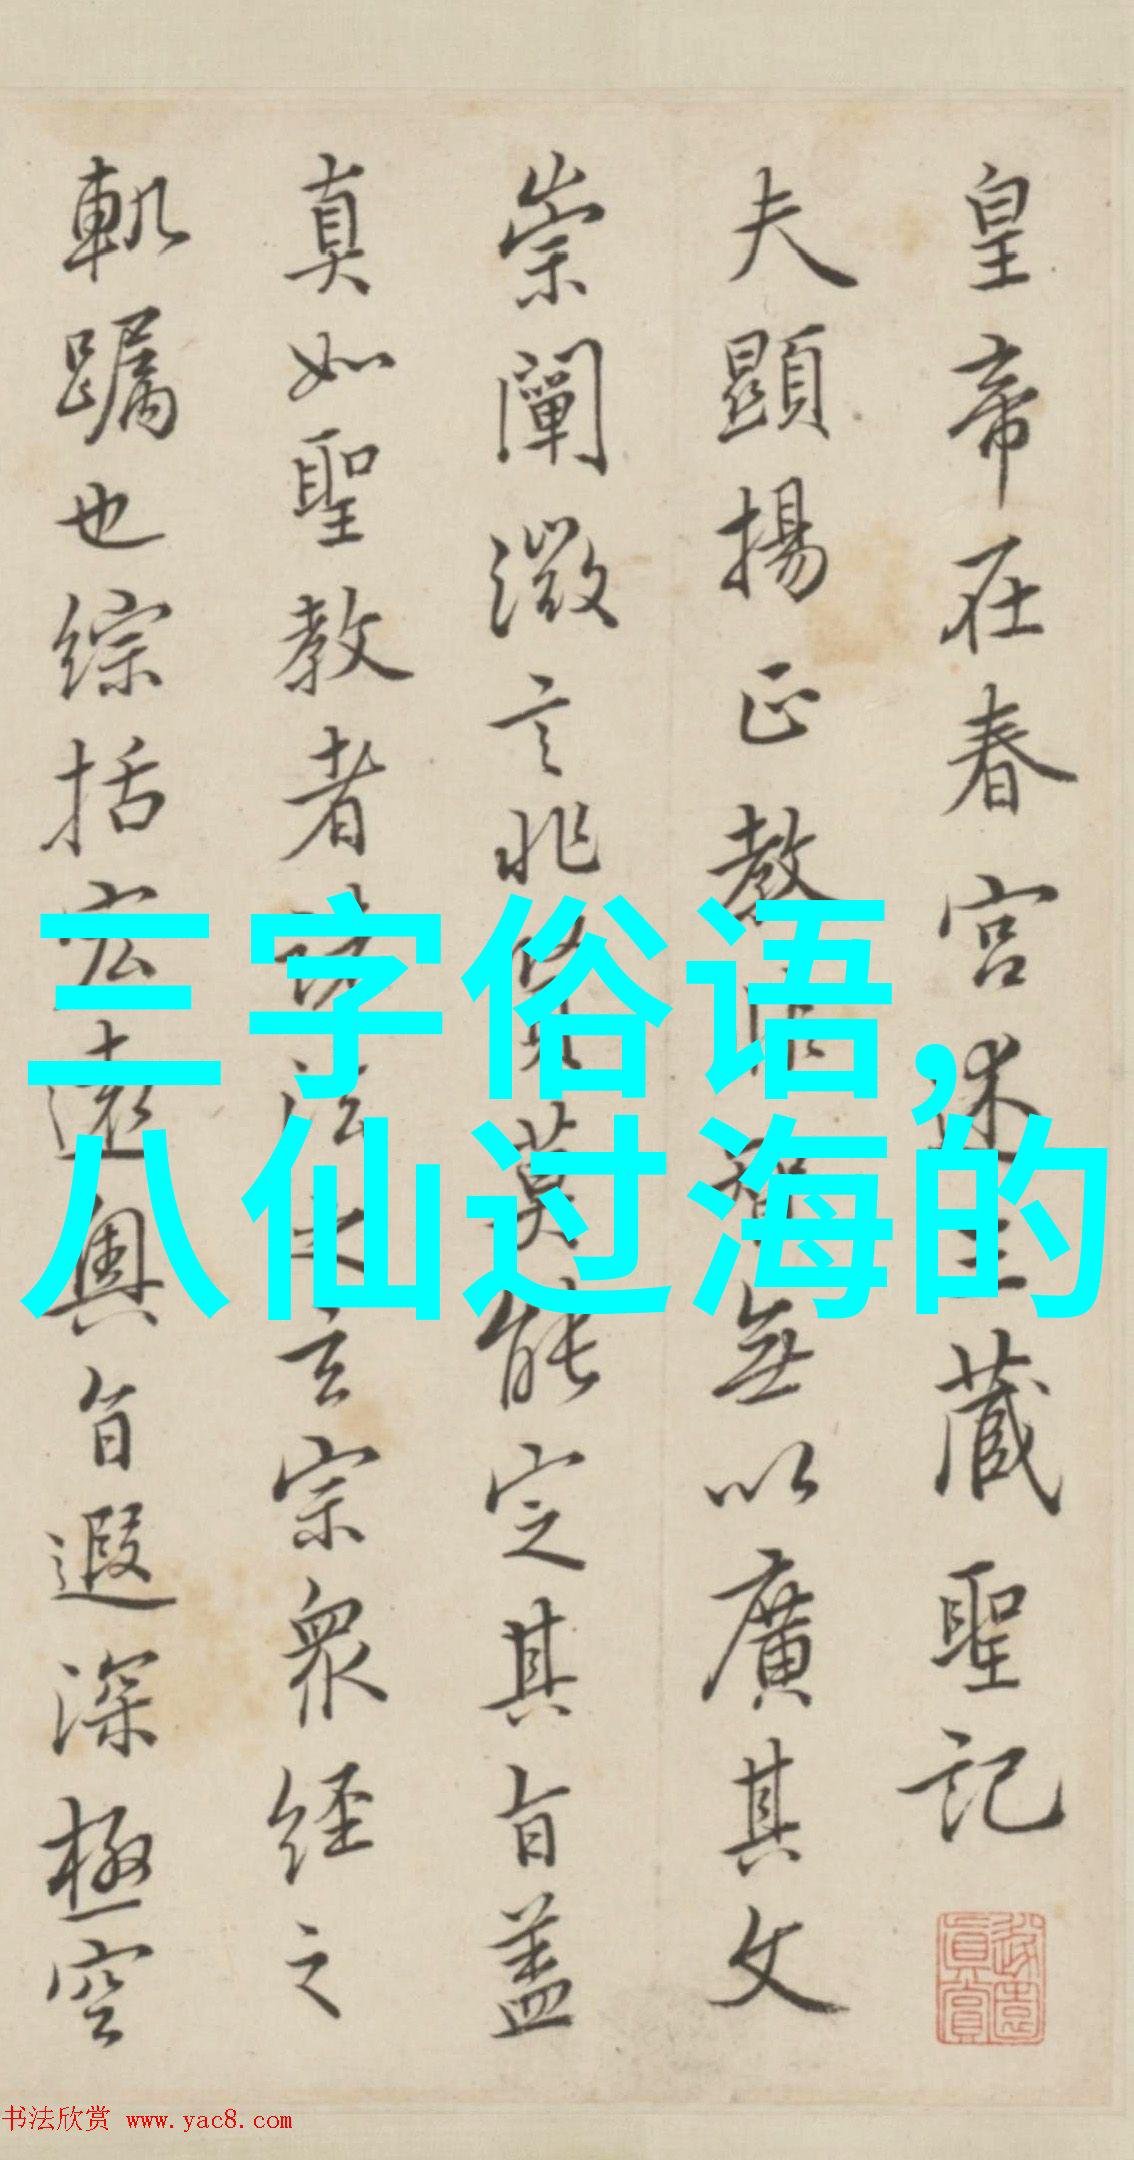 皇帝在春宮述三藏聖記
夫顯揚正教非智無以廣其文
崇闡微言非賢莫能定其旨蓋
真如聖教者諸法之玄宗眾經之
軌躅也綜括宏遠奧旨遐深極空
三字俗语,
八仙过海的
书法欣赏 www.yac8.com